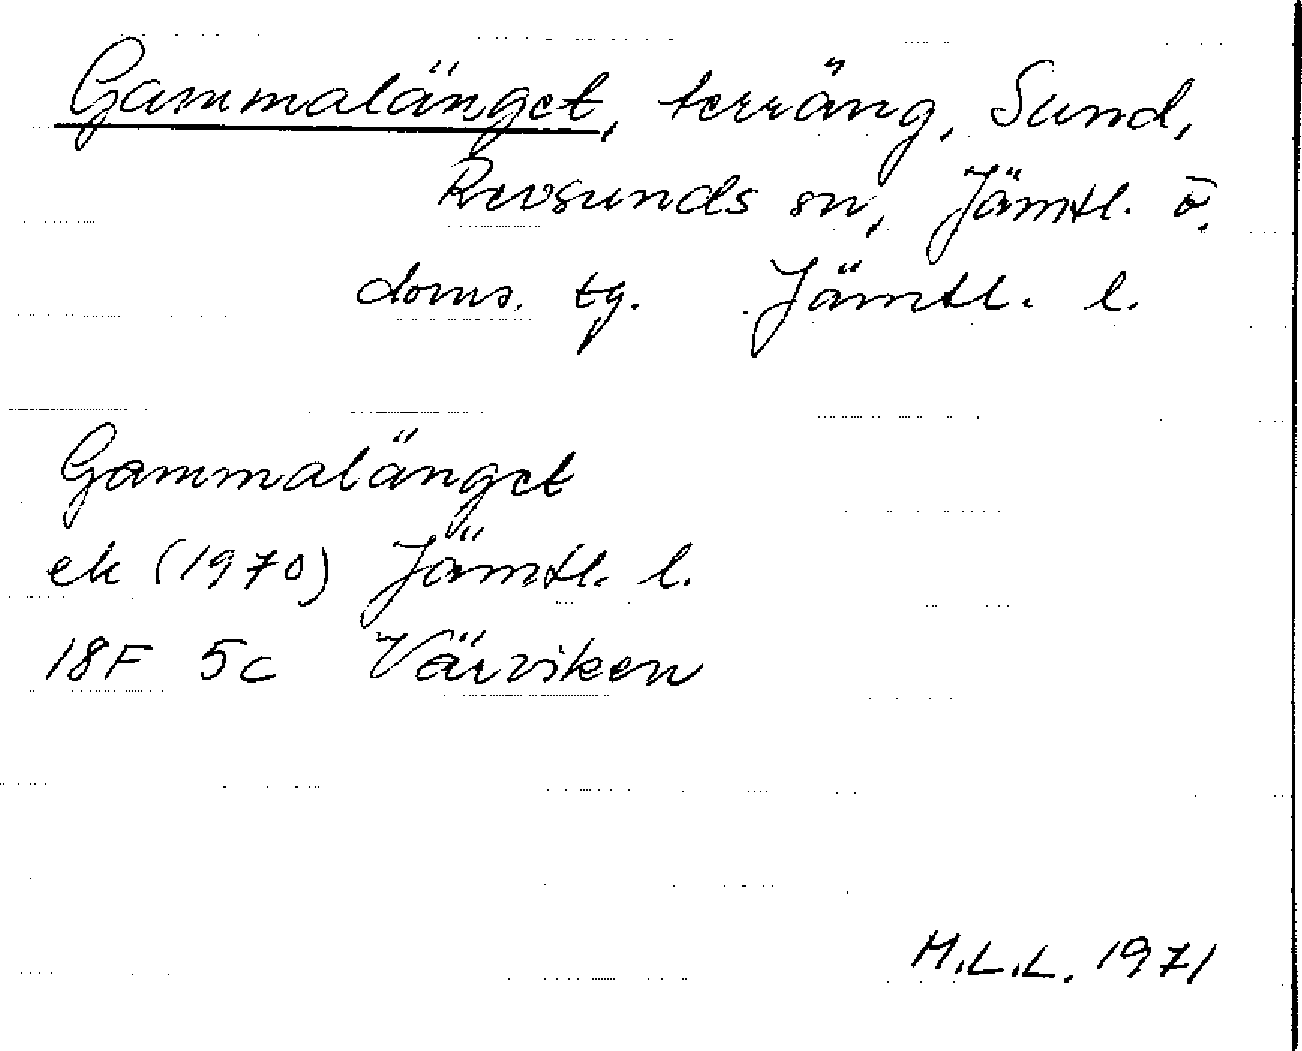 Gammalänget, terräng, Sund,
Revsunds sn, Jämtl. ö.
doms. tg. Jämtl. l.
Gammalänget
ek (1970) Jämtl. l.
18F 5c Värviken
M.L.L. 1971